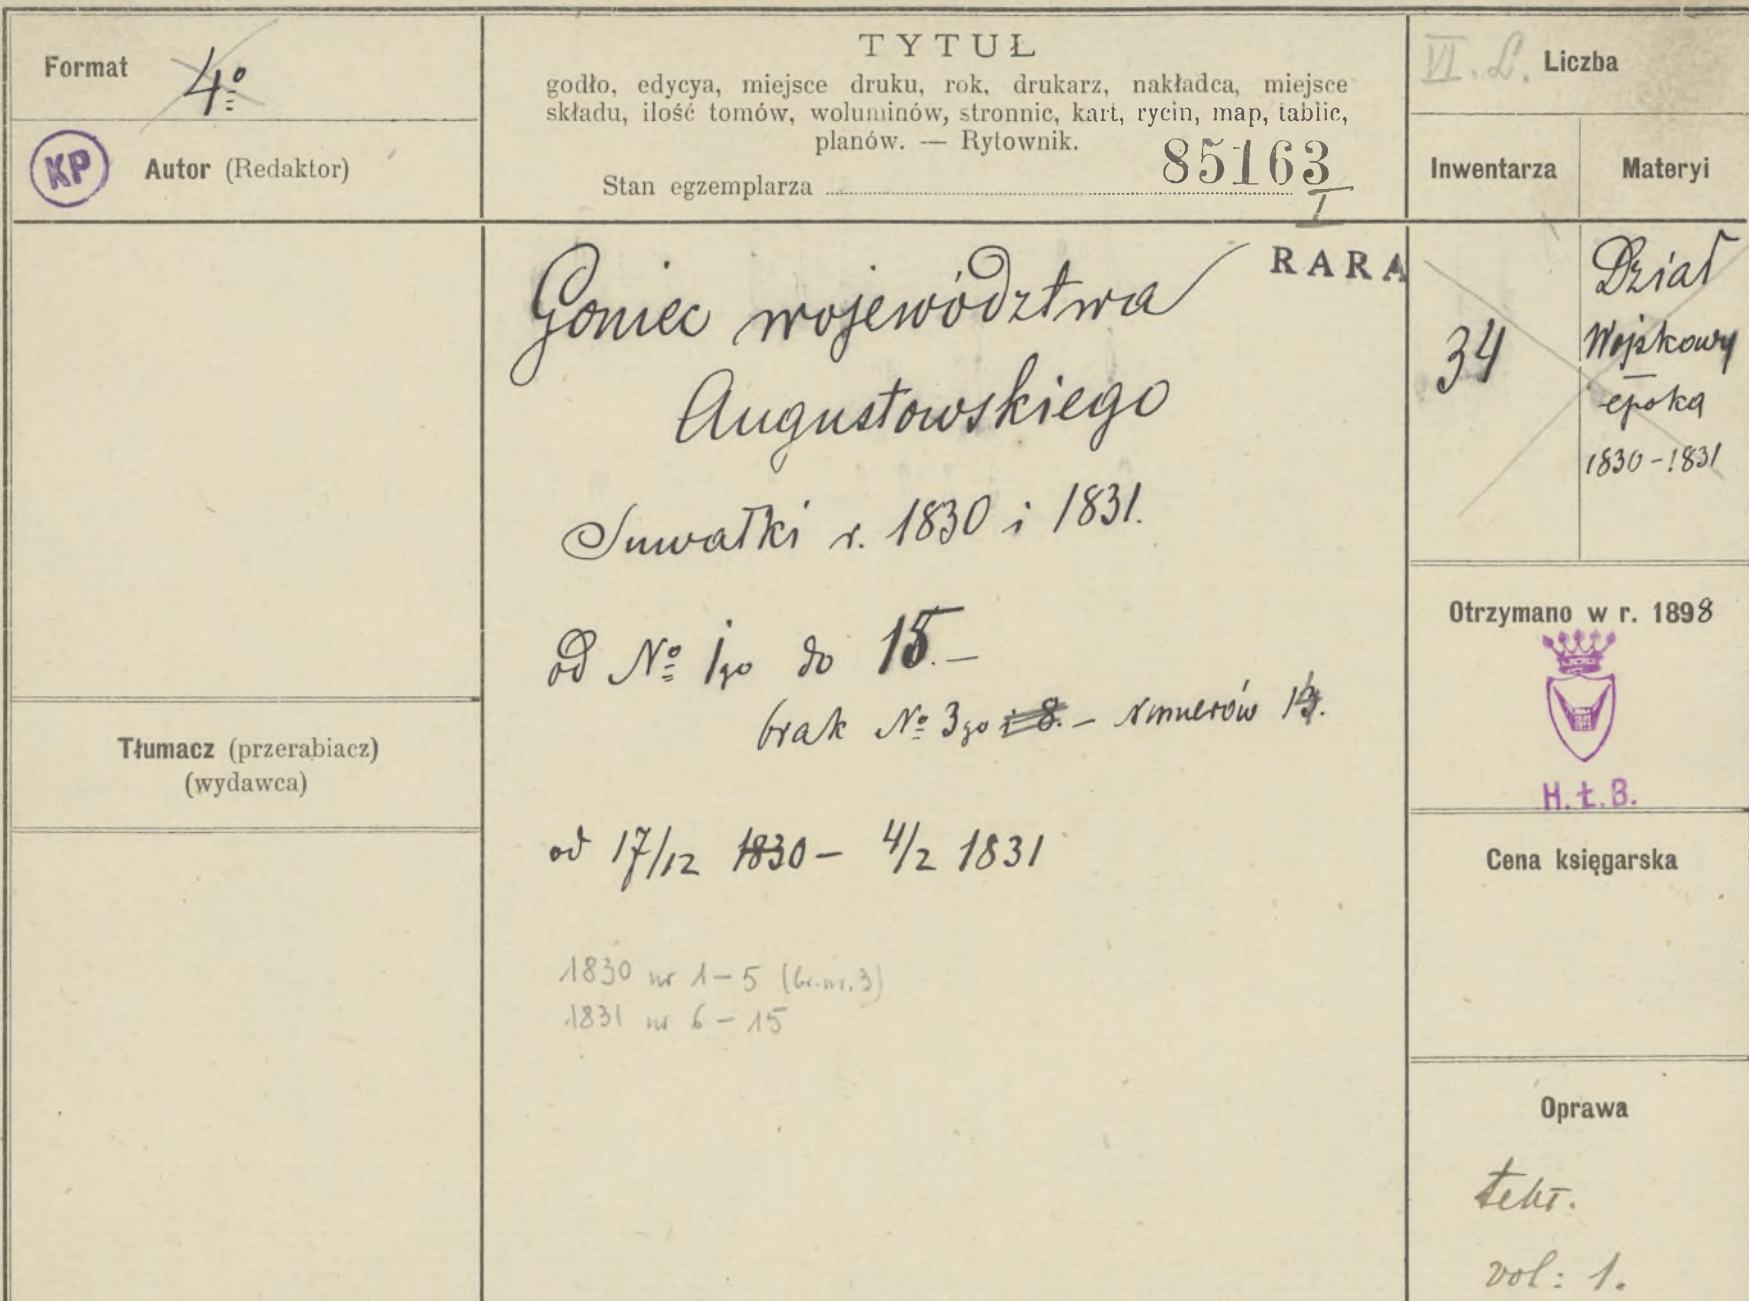 Format 4º
KP
Autor (Redaktor)
TYTUŁ
godło, edycya, miejsce druku, rok, drukarz, nakładca, miejsce
składu, ilość tomów, woluminów, stronnic, kart, rycin, map, tablic,
planów. — Rytownik.
Stan egzemplarza 85163
I
VI. L. Liczba
Inwentarza
Materyi
RARA
Goniec województwa
Augustowskiego
Suwałki r. 1830 i 1831.
od Nº 1go do 15.—
brak Nº 3go i 8. — Numerów
od 17/12 1830 — 4/2 1831
1830 nr 1–5 (br. nr. 3)
1831 nr 6–15
34
Dział
Wojskowy
epoka
1830–1831
Otrzymano w r. 1898
H.Ł.B.
Cena księgarska
Oprawa
tekt.
vol: 1.
Tłumacz (przerabiacz)
(wydawca)